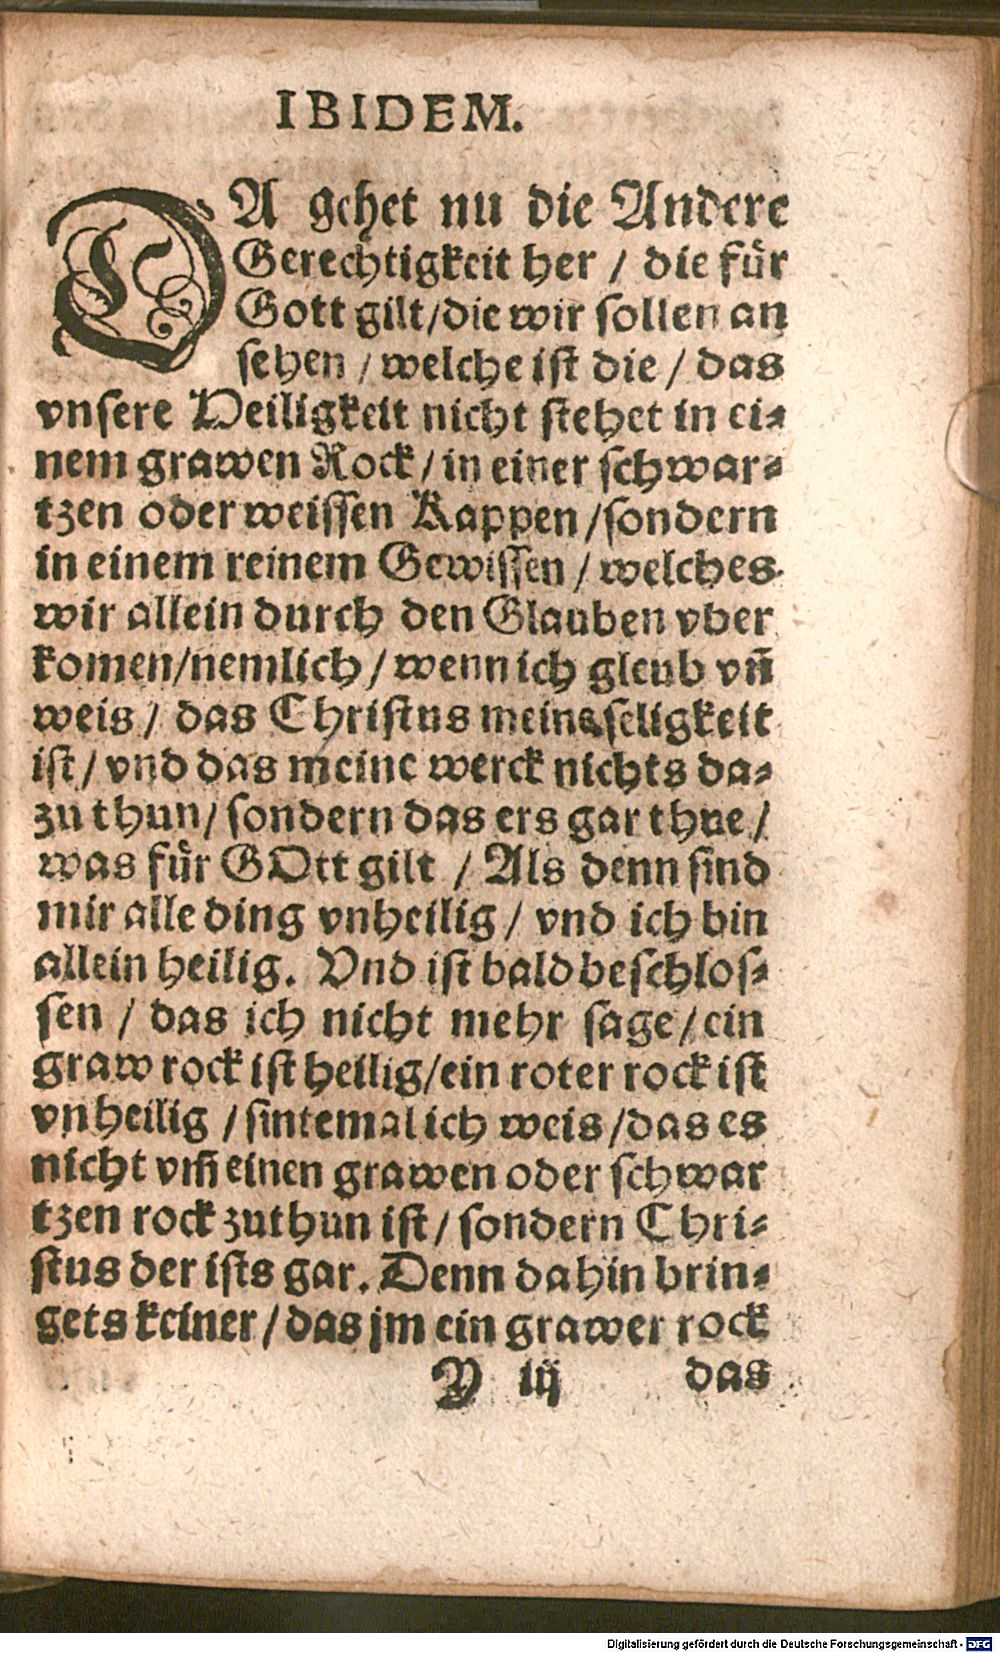 IBIDEM.
DA gehet nu die Andere
Gerechtigkeit her / die für
Gott gilt / die wir sollen an
sehen / welche ist die / das
vnsere Heiligkeit nicht stehet in ei⸗
nem grawen Rock / in einer schwar⸗
tzen oder weissen Kappen / sondern
in einem reinem Gewissen / welches
wir allein durch den Glauben vber
komen / nemlich / wenn ich gleub vñ
weis / das Christus meine seligkeit
ist / vnd das meine werck nichts da⸗
zu thun / sondern das ers gar thue /
was für GOtt gilt / Als denn sind
mir alle ding vnheilig / vnd ich bin
allein heilig. Vnd ist bald beschlos⸗
sen / das ich nicht mehr sage / ein
graw rock ist heilig / ein roter rock ist
vnheilig / sintemal ich weis / das es
nicht vm̃ einen grawen oder schwar
tzen rock zuthun ist / sondern Chri⸗
stus der ists gar. Denn dahin brin⸗
gets keiner / das jm ein grawer rock
Y iij das
Digitalisierung gefördert durch die Deutsche Forschungsgemeinschaft - DFG